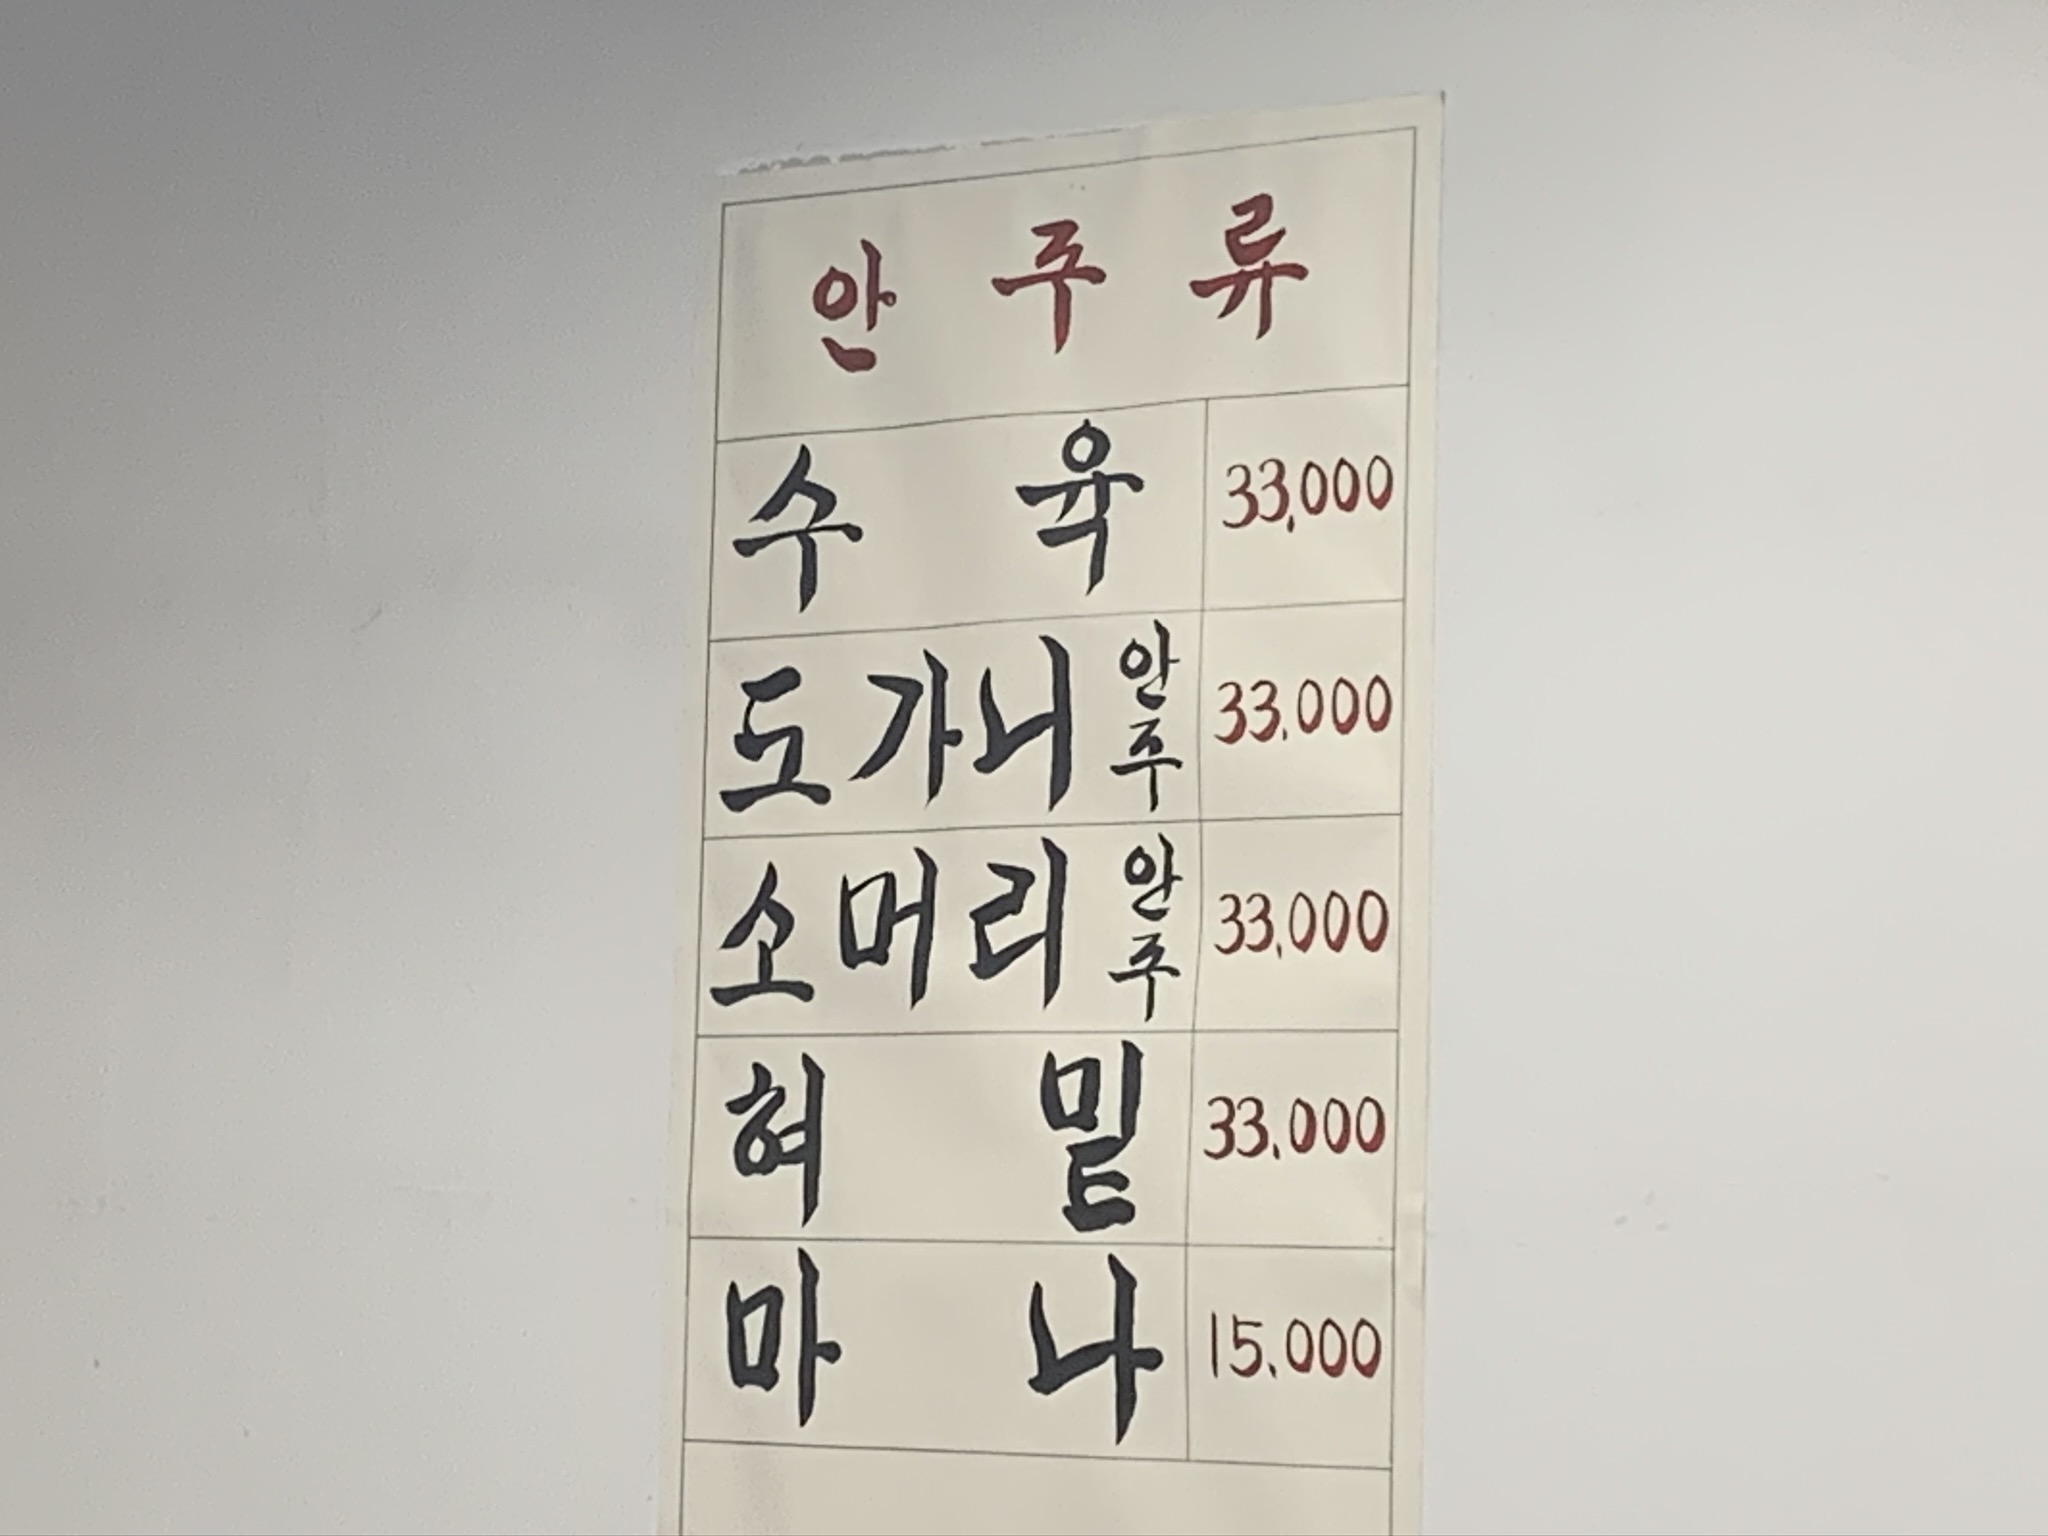 안주류
수육 33,000
도가니안주 33,000
소머리안주 33,000
혀밑 33,000
마나 15,000